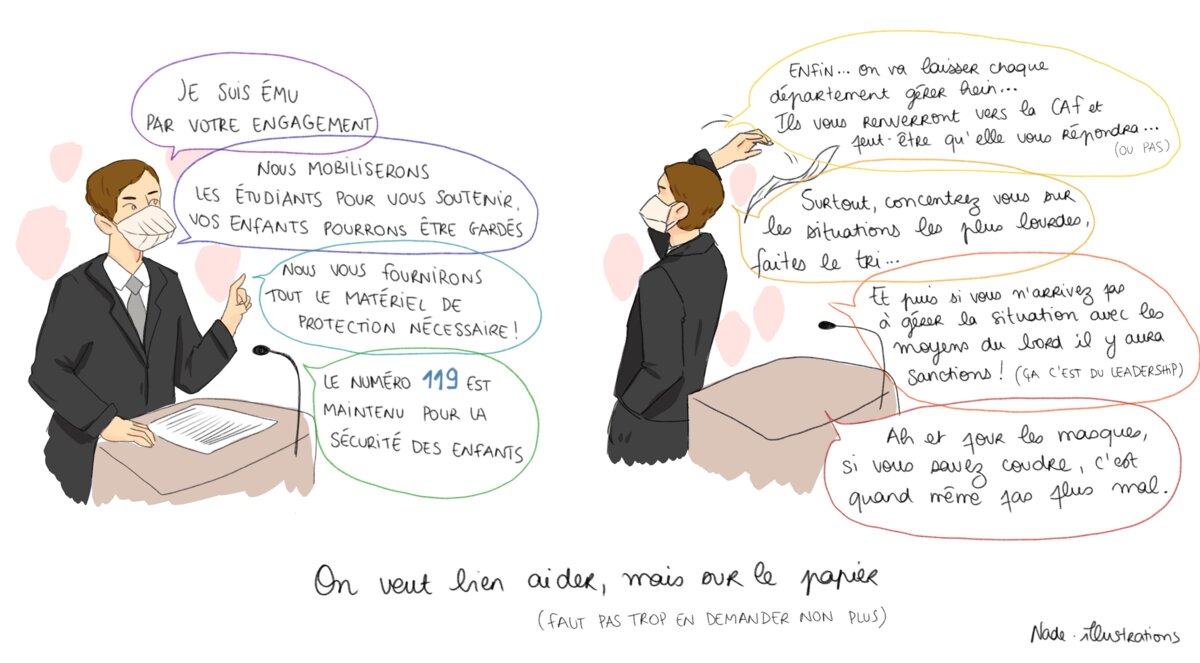 JE SUIS ÉMU
PAR VOTRE ENGAGEMENT
NOUS MOBILISERONS
LES ÉTUDIANTS POUR VOUS SOUTENIR,
VOS ENFANTS POURRONS ÊTRE GARDÉS
NOUS VOUS FOURNIRONS
TOUT LE MATÉRIEL DE
PROTECTION NÉCESSAIRE !
LE NUMÉRO 119 EST
MAINTENU POUR LA
SÉCURITÉ DES ENFANTS
ENFIN... on va laisser chaque
département gérer hein...
Ils vous renverront vers la CAf et
peut-être qu'elle vous répondra...
(OU PAS)
Surtout, concentrez vous sur
les situations les plus lourdes,
faites le tri...
Et puis si vous n'arrivez pas
à gérer la situation avec les
moyens du bord il y aura
sanctions ! (ÇA C'EST DU LEADERSHIP)
Ah et pour les masques,
si vous savez coudre, c'est
quand même pas plus mal.
On veut bien aider, mais sur le papier
(FAUT PAS TROP EN DEMANDER NON PLUS)
Nade.illustrations